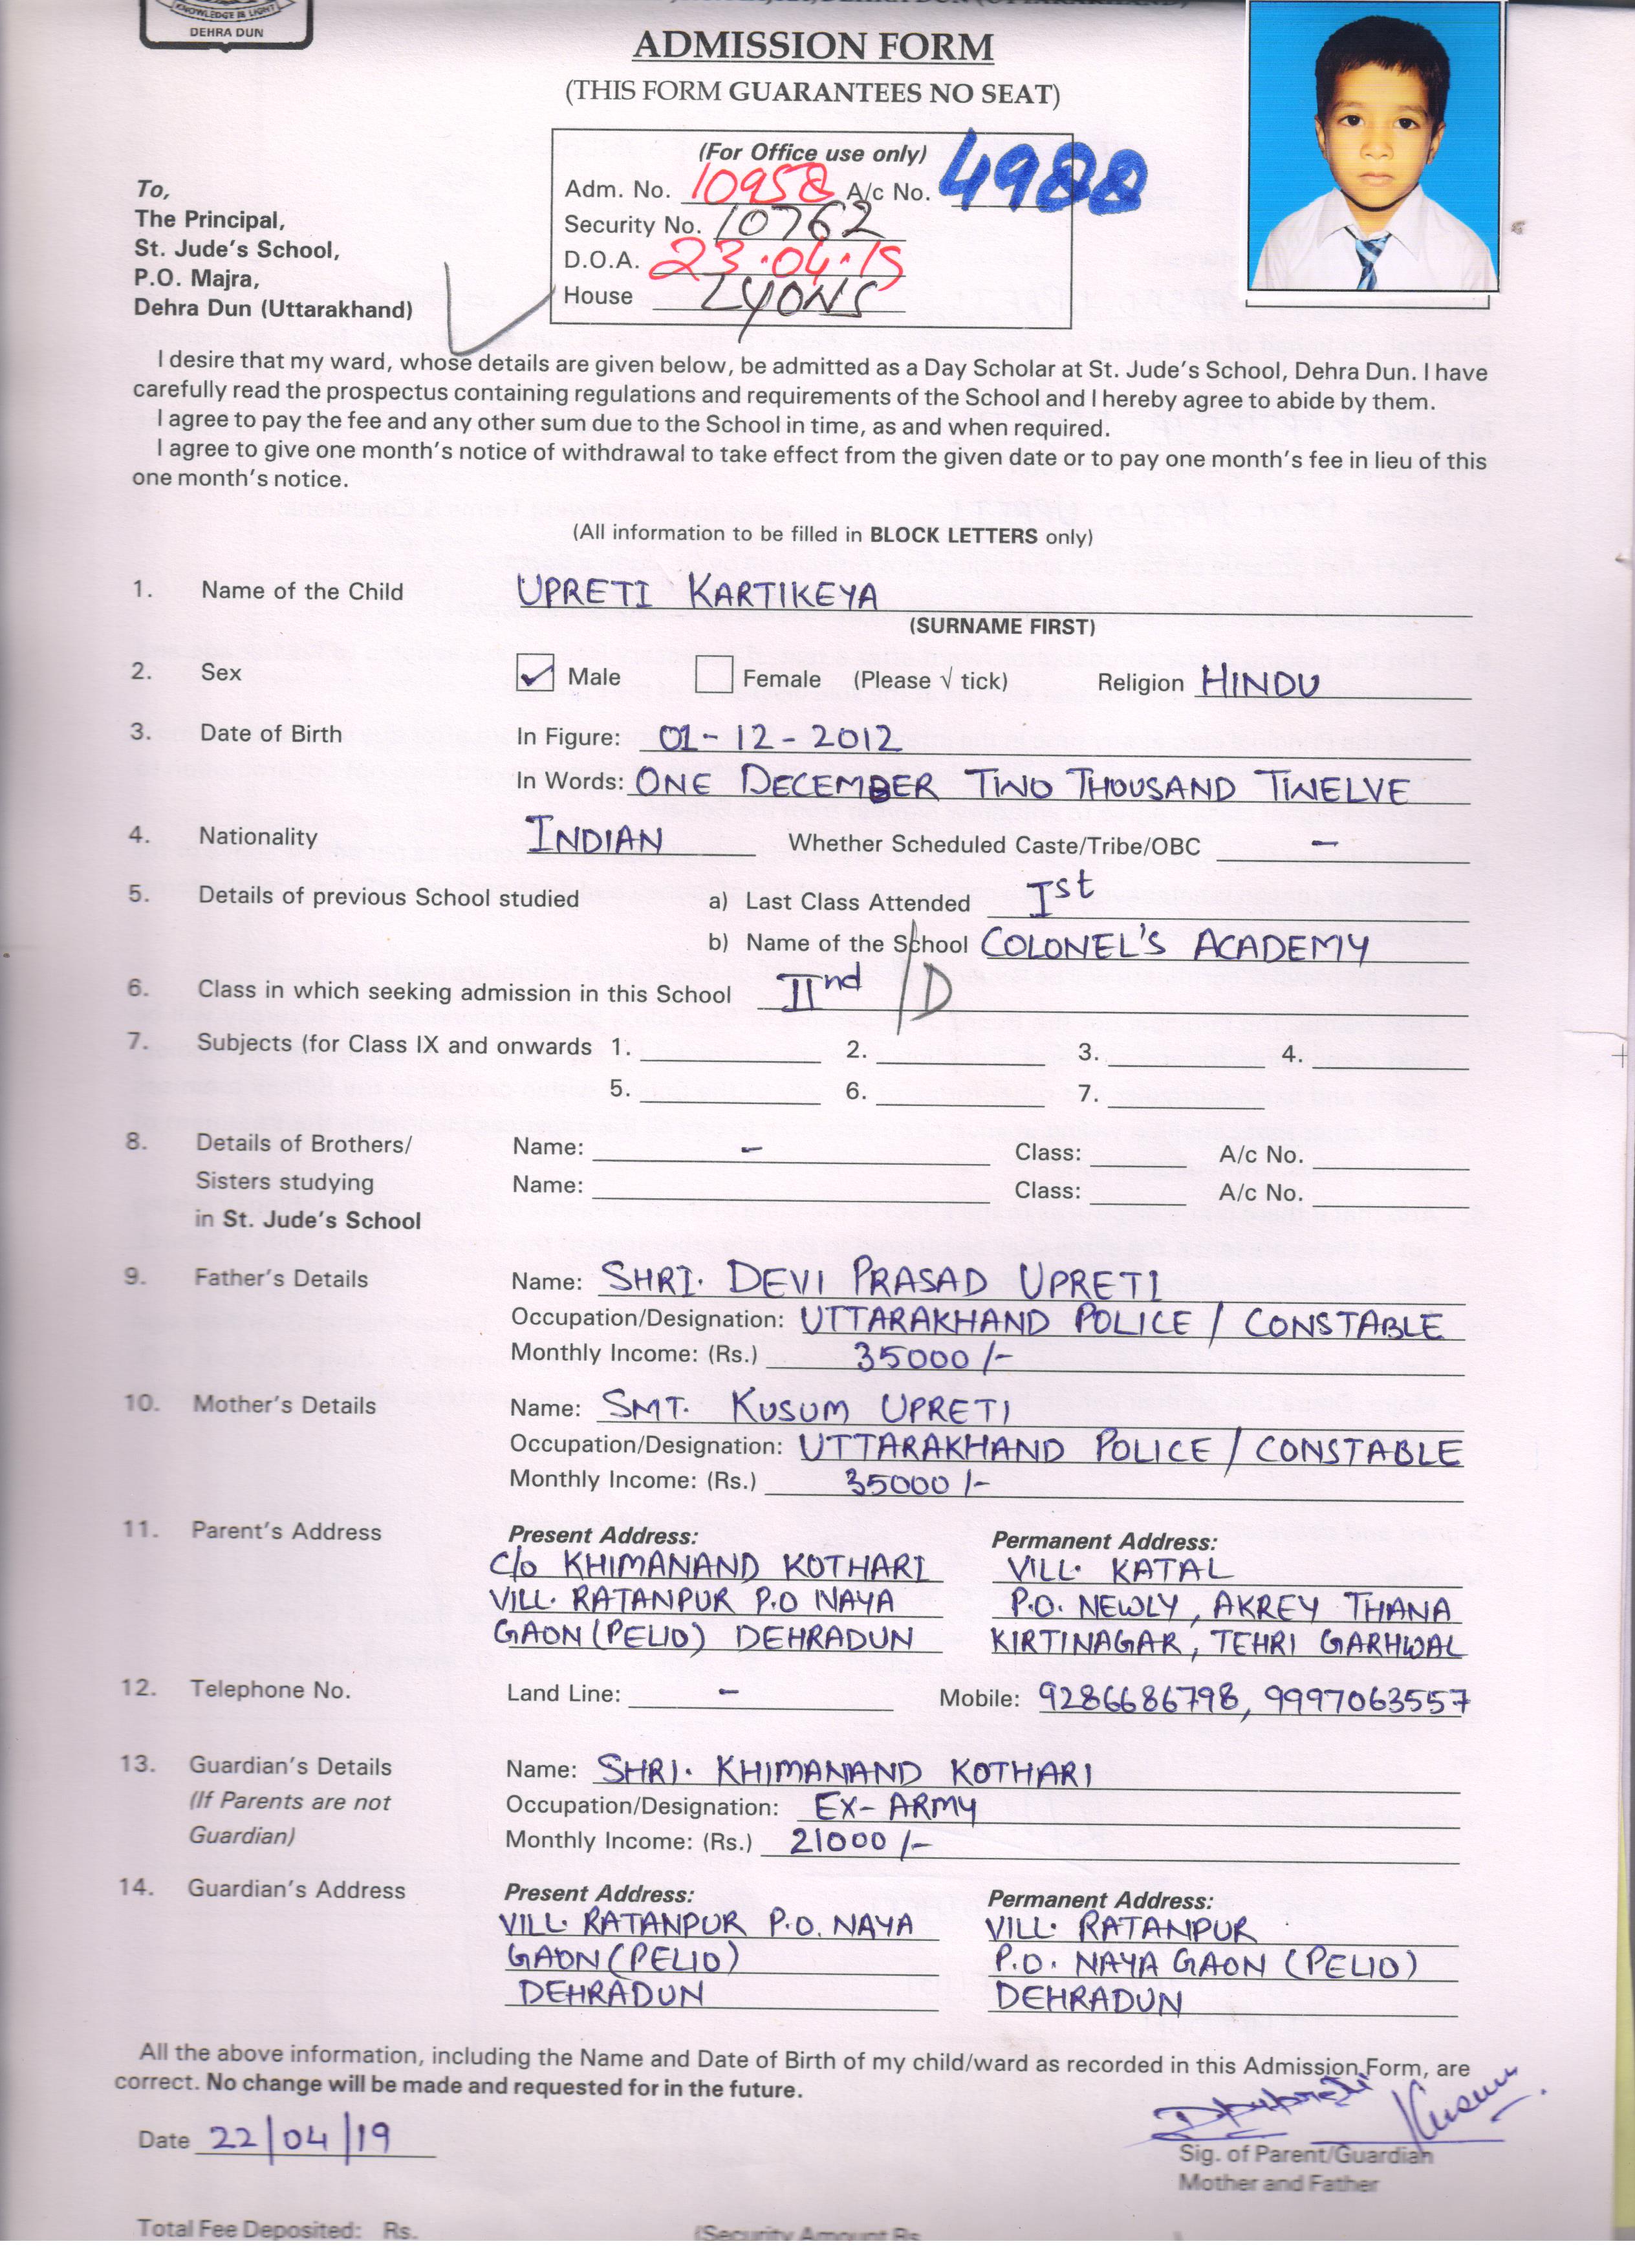 KNOWLEDGE IS LIGHT
DEHRA DUN
ADMISSION FORM
(THIS FORM GUARANTEES NO SEAT)
(For Office use only)
Adm. No. 10958 A/c No. 4988
Security No. 10762
D.O.A. 23.04.19
House LYONS
To,
The Principal,
St. Jude's School,
P.O. Majra,
Dehra Dun (Uttarakhand)
I desire that my ward, whose details are given below, be admitted as a Day Scholar at St. Jude's School, Dehra Dun. I have
carefully read the prospectus containing regulations and requirements of the School and I hereby agree to abide by them.
I agree to pay the fee and any other sum due to the School in time, as and when required.
I agree to give one month's notice of withdrawal to take effect from the given date or to pay one month's fee in lieu of this
one month's notice.
(All information to be filled in BLOCK LETTERS only)
1. Name of the Child UPRETI KARTIKEYA
(SURNAME FIRST)
2. Sex Male Female (Please √ tick) Religion HINDU
3. Date of Birth In Figure: 01-12-2012
In Words: ONE DECEMBER TWO THOUSAND TWELVE
4. Nationality INDIAN Whether Scheduled Caste/Tribe/OBC -
5. Details of previous School studied a) Last Class Attended Ist
b) Name of the School COLONEL'S ACADEMY
6. Class in which seeking admission in this School IInd /D
7. Subjects (for Class IX and onwards 1. 2. 3. 4.
5. 6. 7.
8. Details of Brothers/ Name: - Class: A/c No.
Sisters studying Name: Class: A/c No.
in St. Jude's School
9. Father's Details Name: SHRI. DEVI PRASAD UPRETI
Occupation/Designation: UTTARAKHAND POLICE / CONSTABLE
Monthly Income: (Rs.) 35000/-
10. Mother's Details Name: SMT. KUSUM UPRETI
Occupation/Designation: UTTARAKHAND POLICE / CONSTABLE
Monthly Income: (Rs.) 35000/-
11. Parent's Address Present Address: Permanent Address:
C/o KHIMANAND KOTHARI VILL. KATAL
VILL. RATANPUR P.O NAYA P.O. NEWLY, AKREY THANA
GAON (PELIO) DEHRADUN KIRTINAGAR, TEHRI GARHWAL
12. Telephone No. Land Line: - Mobile: 9286686798, 9997063557
13. Guardian's Details Name: SHRI. KHIMANAND KOTHARI
(If Parents are not Occupation/Designation: EX-ARMY
Guardian) Monthly Income: (Rs.) 21000/-
14. Guardian's Address Present Address: Permanent Address:
VILL. RATANPUR P.O. NAYA VILL. RATANPUR
GAON (PELIO) P.O. NAYA GAON (PELIO)
DEHRADUN DEHRADUN
All the above information, including the Name and Date of Birth of my child/ward as recorded in this Admission Form, are
correct. No change will be made and requested for in the future.
Date 22/04/19 Kusum
Sig. of Parent/Guardian
Mother and Father
Total Fee Deposited: Rs. (Security Amount Rs